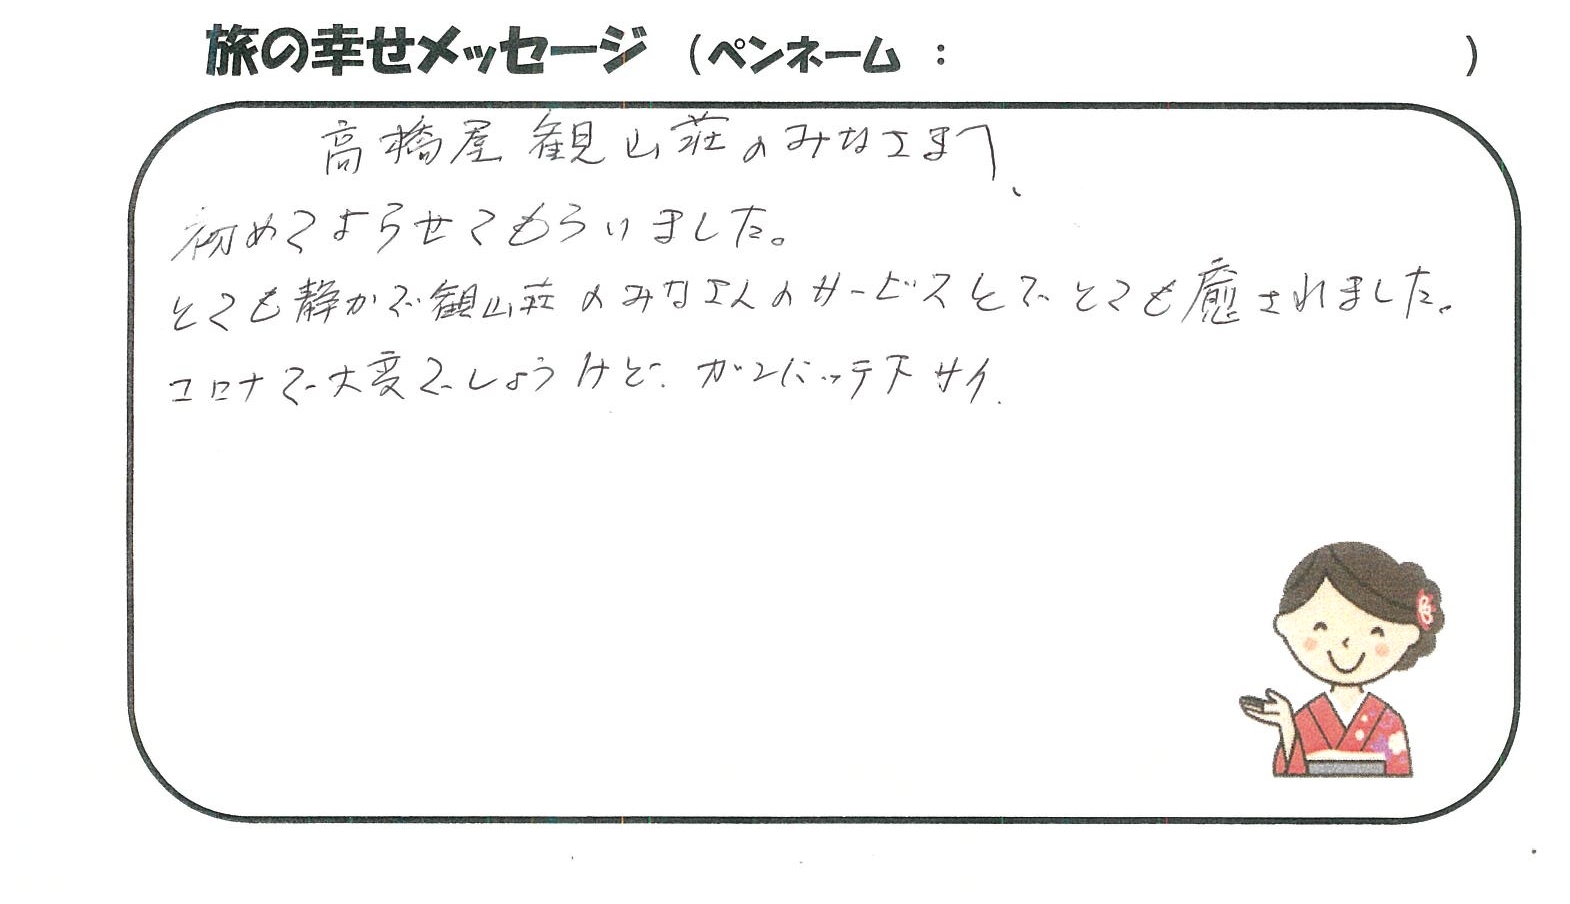 旅の幸せメッセージ (ペンネーム : )
高橋屋観山荘のみなさまへ、
初めてよらせてもらいました。
とても静かで観山荘のみなさんのサービスとでとても癒されました。
コロナで大変でしょうけど、ガンバッテ下サイ.